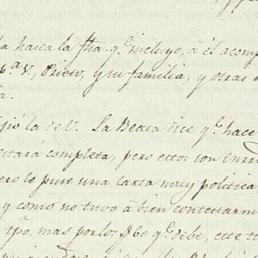 hasta la fha. q.e incluyo, á él acomp
p.a V., Prieto, y su familia, y otras
a.
gió la de V. La Beata dice q.e hace
estará completa, pero estos son enre
ero le puse una carta muy politica
y como no tuvo á bien contestarm
tpô. mas por los $60 q.e debe, este t